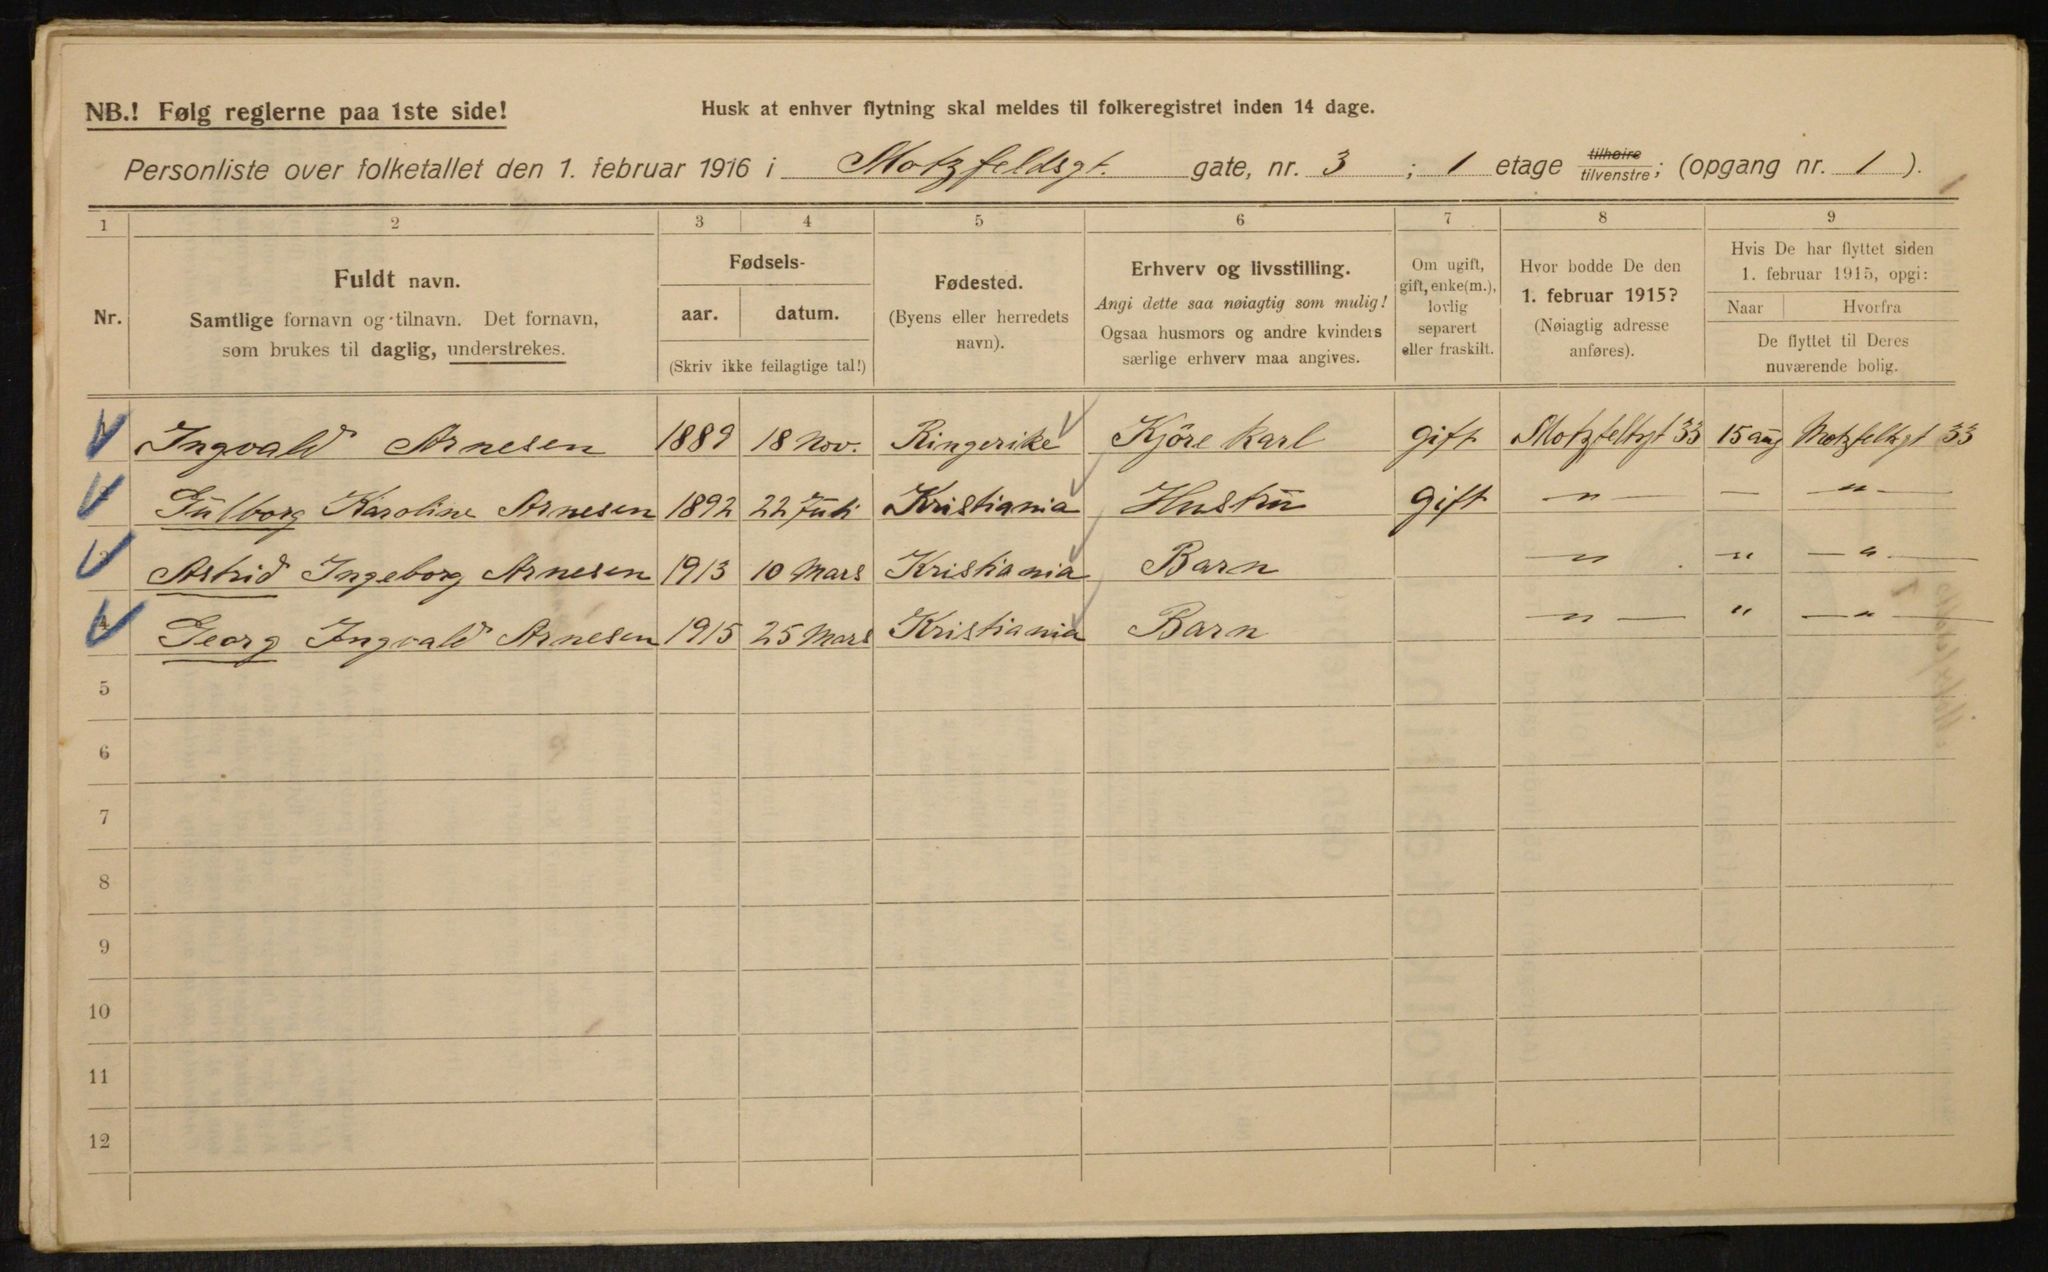 NB.! Følg reglerne paa 1ste side!
Husk at enhver flytning skal meldes til folkeregistret inden 14 dage.
Personliste over folketallet den 1. februar 1916 i Motzfeldsgt. gate, nr. 3 ; 1 etage tilhøire tilvenstre; (opgang nr. 1 ).
1 2 3 4 5 6 7 8 9
Nr.
Fuldt navn.
Samtlige fornavn og tilnavn. Det fornavn,
som brukes til daglig, understrekes.
Fødsels-
aar. datum.
(Skriv ikke feilagtige tal!)
Fødested.
(Byens eller herredets
navn).
Erhverv og livsstilling.
Angi dette saa nøiagtig som mulig!
Ogsaa husmors og andre kvinders
særlige erhverv maa angives.
Om ugift,
gift, enke(m.),
lovlig
separert
eller fraskilt.
Hvor bodde De den
1. februar 1915?
(Nøiagtig adresse
anføres).
Hvis De har flyttet siden
1. februar 1915, opgi:
Naar Hvorfra
De flyttet til Deres
nuværende bolig.
1 Ingvald Arnesen 1889 18 Nov. Ringerike Kjöre Karl gift Motzfeltgt 33 15 aug Motzfeltgt 33
2 Gulborg Karoline Arnesen 1892 22 Juli Kristiania Hustru gift — " — — " —
3 Astrid Ingeborg Arnesen 1913 10 Mars Kristiania Barn — " — " — " —
4 Georg Ingvald Arnesen 1915 25 Mars Kristiania Barn — " — " — " —
5
6
7
8
9
10
11
12